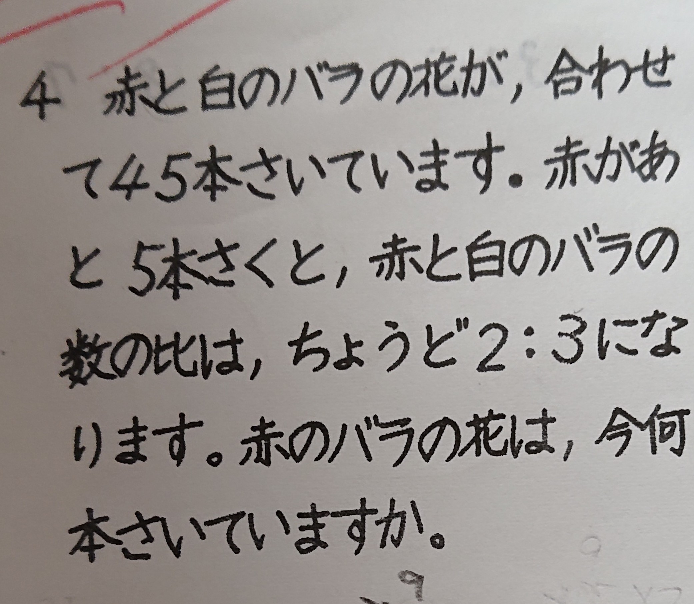 4 赤と白のバラの花が,合わせ
て45本さいています。赤があ
と5本さくと,赤と白のバラの
数の比は,ちょうど2:3にな
ります。赤のバラの花は,今何
本さいていますか。
9